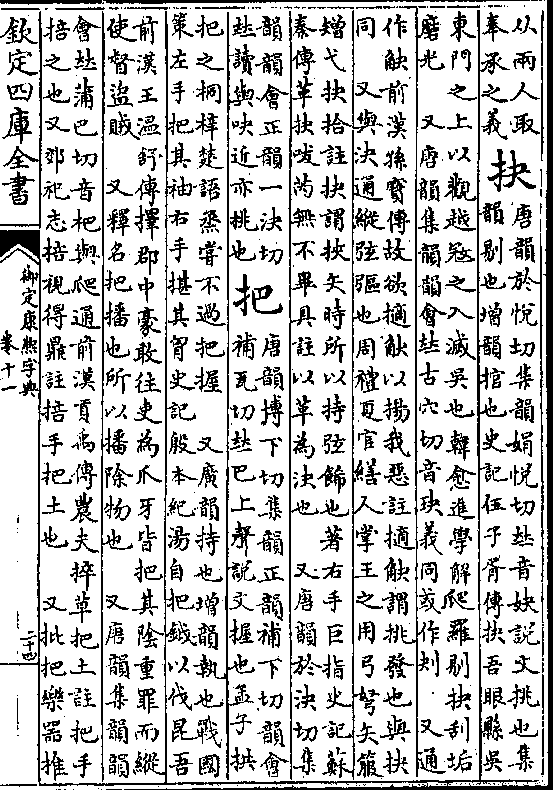 从兩人取
奉承之義
抉
唐韻於悅切集韻娟悅切𠀤音妜說文挑也集
韻剔也增韻捾也史記伍子胥傳抉吾眼縣吳
東門之上以觀越寇之入滅吳也韓愈進學解爬羅剔抉刮垢
磨光 又唐韻集韻韻會𠀤古穴切音玦義同或作刔 又通
作觖前漢孫寶傳故欲擿觖以揚我惡註擿觖謂挑發也與抉
同 又與決通縱弦彄也周禮夏官繕人掌王之用弓弩矢箙
矰弋抉拾註抉謂挾矢時所以持弦飾也著右手巨指史記蘇
秦傳革抉㕹芮無不畢具註以革為決也 又唐韻於決切集
韻韻會正韻一決切
𠀤讀與吷近亦挑也
把
唐韻搏下切集韻正韻補下切韻會
補瓦切𠀤巴上聲說文握也孟子拱
把之桐梓楚語烝嘗不過把握 又廣韻持也增韻執也戰國
策左手把其袖右手揕其胷史記殷本紀湯自把鉞以伐昆吾
前漢王溫舒傳擇郡中豪敢往吏為爪牙皆把其陰重罪而縱
使督盜賊 又釋名把播也所以播除物也 又唐韻集韻韻
會𠀤蒲巴切音杷與爬通前漢貢禹傳農夫捽草把土註把手
掊之也又郊祀志掊視得鼎註掊手把土也 又批把樂器推
欽定四庫全書
御定康熙字典
卷十一
二十四